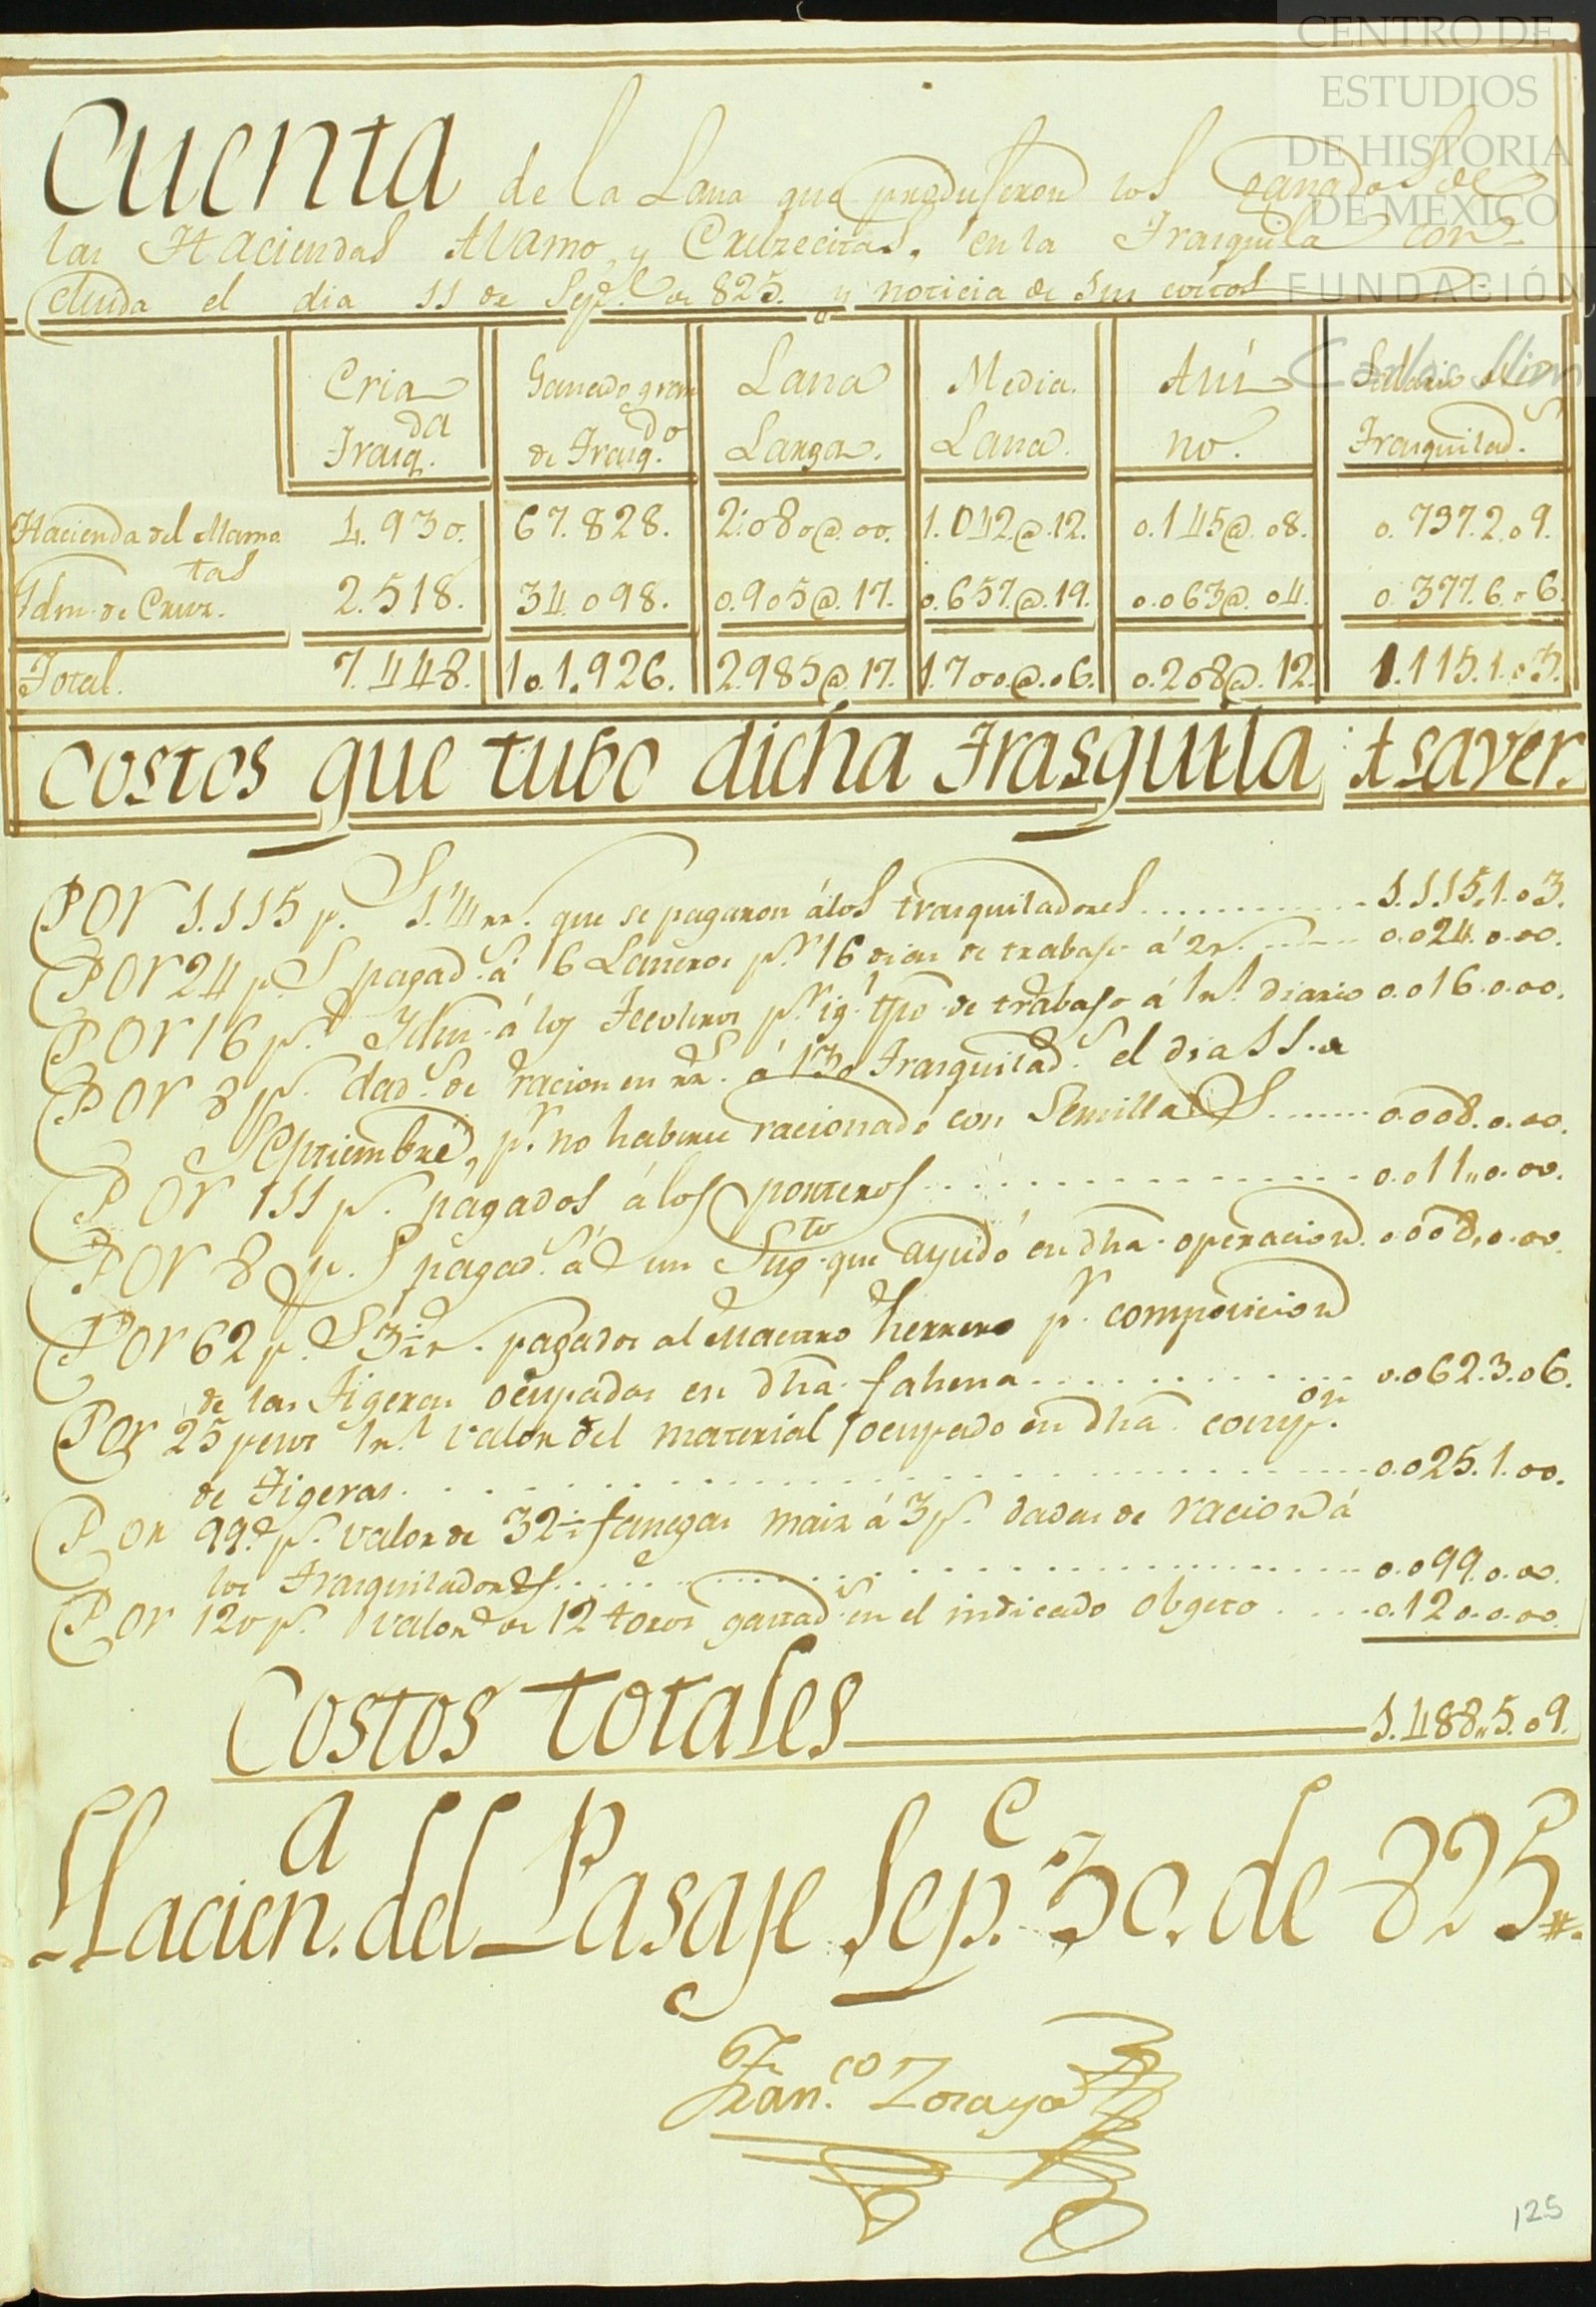 CENTRO DE
ESTUDIOS
DE HISTORIA
DE MÉXICO
FUNDACIÓN
Carlos Slim
Cuenta de la Lana que produseron los ganados de
las Haciendas Alamo, y Cruzecitas, en la Trasquila con-
cluida el dia 11 de Sepe. de 825. y noticia de sus costos
Cria da Trasq.
Ganado gran de Trasqdo.
Lana Larga.
Media. Lana.
Añi no.
Salario de Trasquilads.
Hacienda del Alamo 4.930. 67.828. 2.080@.00. 1.042@.12. 0.145@.08. 0.737.2.09.
Idm. de Cruz.tas 2.518. 34.098. 0.905@.17. 0.657@.19. 0.063@.04. 0.377.6.06.
Total. 7.448. 101.926. 2.985@.17. 1.700@.06. 0.208@.12. 1.115.1.03.
Costos que tubo dicha Trasquila Asaver.
POr 1.115 ps. 1.¼ rr. que se pagaron álos trasquiladores 1.115.1.03.
POr 24 ps. pagads. á 6 Laneros pr. 16 dias de trabajo á 2r. 0.024.0.00.
POr 16 ps. Idm. á los Tecoleros pr. igl. tpo. de trabajo á 1rl. diario 0.016.0.00.
POr 8 ps. dads. de racion en rrs. á 130 Trasquilads. el dia 11. de
Septiembre, pr. no haberse racionado con Semillas 0.008.0.00.
POr 111 ps. pagados á los ponteros 0.011.0.00.
POr 8 ps. pagads. á un Sugto. que ayudó en dha. operacion. 0.008.0.00.
POr 62 ps. 3½ r. pagados al Maestro herrero pr. composicion
de las Tigeras ocupadas en dha. fahena 0.062.3.06.
POr 25 pesos 1rl. valor del material ocupado en dha. compon.
de Tigeras. 0.025.1.00.
POr 99. ps. valor de 32½ fanegas maiz á 3 ps. dadas de racion á
los Trasquiladores 0.099.0.00.
POr 120 ps. valor de 12 toros gastads. en el indicado obgeto 0.120.0.00.
Costos totales 1.488.5.09.
Hacienda. del Pasaje Sepe. 30. de 825.
Franco. Zoraya
125